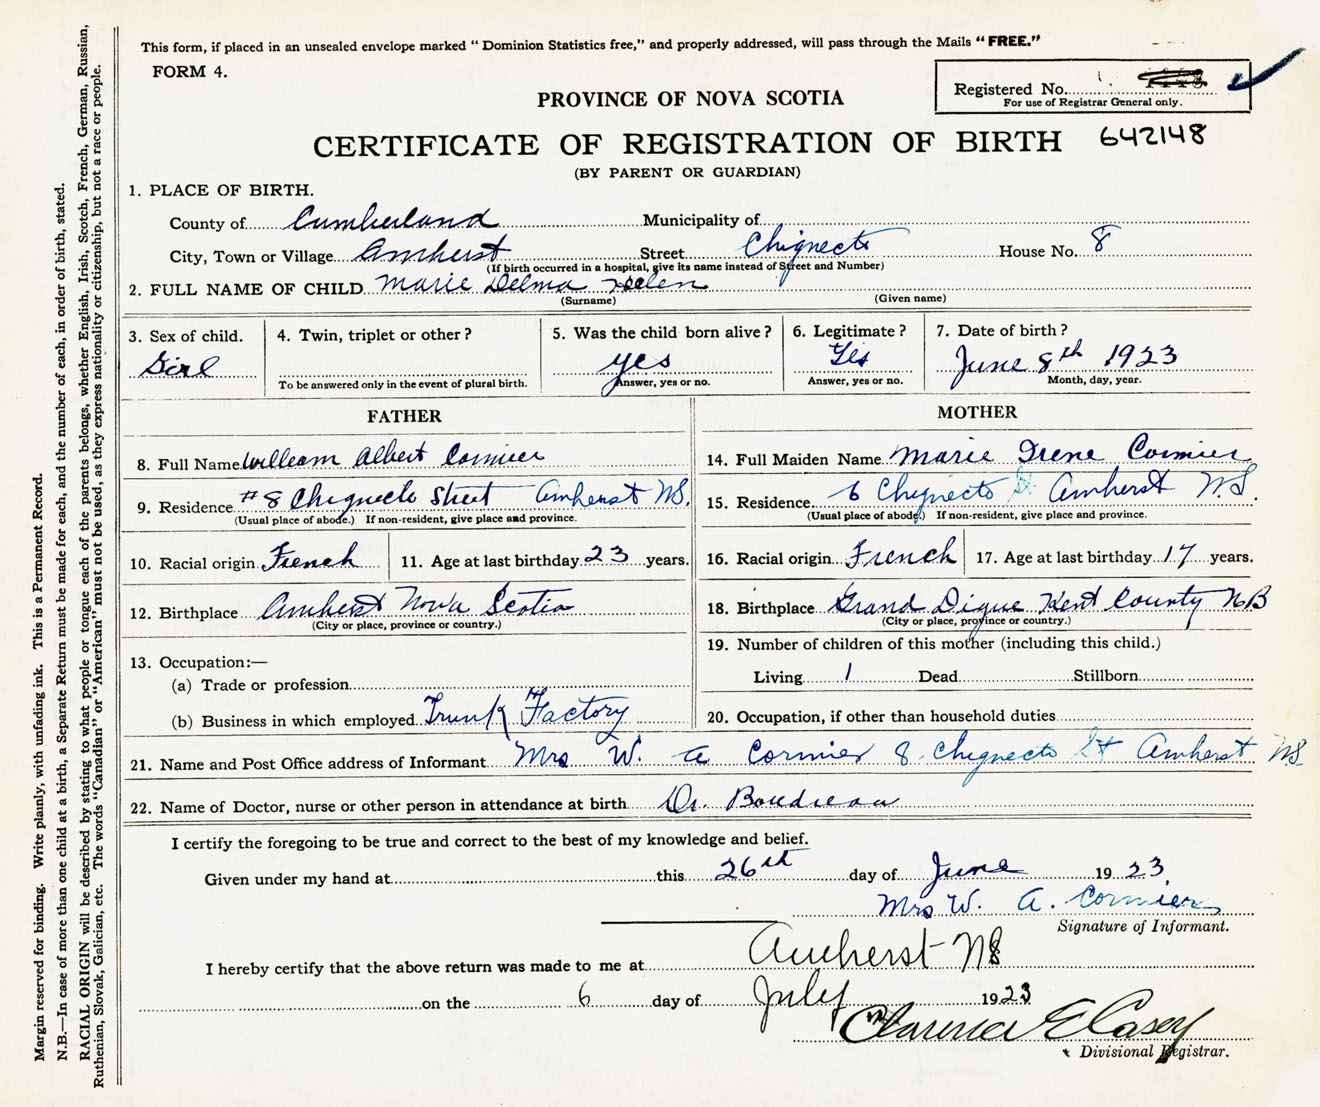 This form, if placed in an unsealed envelope marked " Dominion Statistics free," and properly addressed, will pass through the Mails " FREE."
FORM 4.
Registered No.
For use of Registrar General only.
PROVINCE OF NOVA SCOTIA
CERTIFICATE OF REGISTRATION OF BIRTH 642148
(BY PARENT OR GUARDIAN)
1. PLACE OF BIRTH.
County of Cumberland Municipality of
City, Town or Village Amherst Street Chignecto House No. 8
(If birth occurred in a hospital, give its name instead of Street and Number)
2. FULL NAME OF CHILD Marie Delma Helen
(Surname) (Given name)
3. Sex of child. 4. Twin, triplet or other? 5. Was the child born alive? 6. Legitimate? 7. Date of birth?
Girl yes Yes June 8th 1923
To be answered only in the event of plural birth. Answer, yes or no. Answer, yes or no. Month, day, year.
FATHER
8. Full Name William Albert Cormier
9. Residence #8 Chignecto Street Amherst N.S.
(Usual place of abode.) If non-resident, give place and province.
10. Racial origin French 11. Age at last birthday 23 years.
12. Birthplace Amherst Nova Scotia
(City or place, province or country.)
13. Occupation:—
(a) Trade or profession
(b) Business in which employed Trunk Factory
MOTHER
14. Full Maiden Name Marie Irene Cormier
15. Residence 6 Chignecto St Amherst N.S.
(Usual place of abode.) If non-resident, give place and province.
16. Racial origin French 17. Age at last birthday 17 years.
18. Birthplace Grand Digue Kent County NB
(City or place, province or country.)
19. Number of children of this mother (including this child.)
Living 1 Dead Stillborn
20. Occupation, if other than household duties
21. Name and Post Office address of Informant Mrs W. A Cormier 8 Chignecto St Amherst NS
22. Name of Doctor, nurse or other person in attendance at birth Dr. Boudreau
I certify the foregoing to be true and correct to the best of my knowledge and belief.
Given under my hand at this 26th day of June 1923
Mrs W. A. Cormier
Signature of Informant.
I hereby certify that the above return was made to me at Amherst NS
on the 6 day of July 1923
Clarence E Casey
Divisional Registrar.
Margin reserved for binding. Write plainly, with unfading ink. This is a Permanent Record.
N.B.—In case of more than one child at a birth, a Separate Return must be made for each, and the number of each, in order of birth, stated.
RACIAL ORIGIN will be described by stating to what people or tongue each of the parents belongs, whether English, Irish, Scotch, French, German, Russian,
Ruthenian, Slovak, Galician, etc. The words "Canadian" or "American" must not be used, as they express nationality or citizenship, but not a race or people.